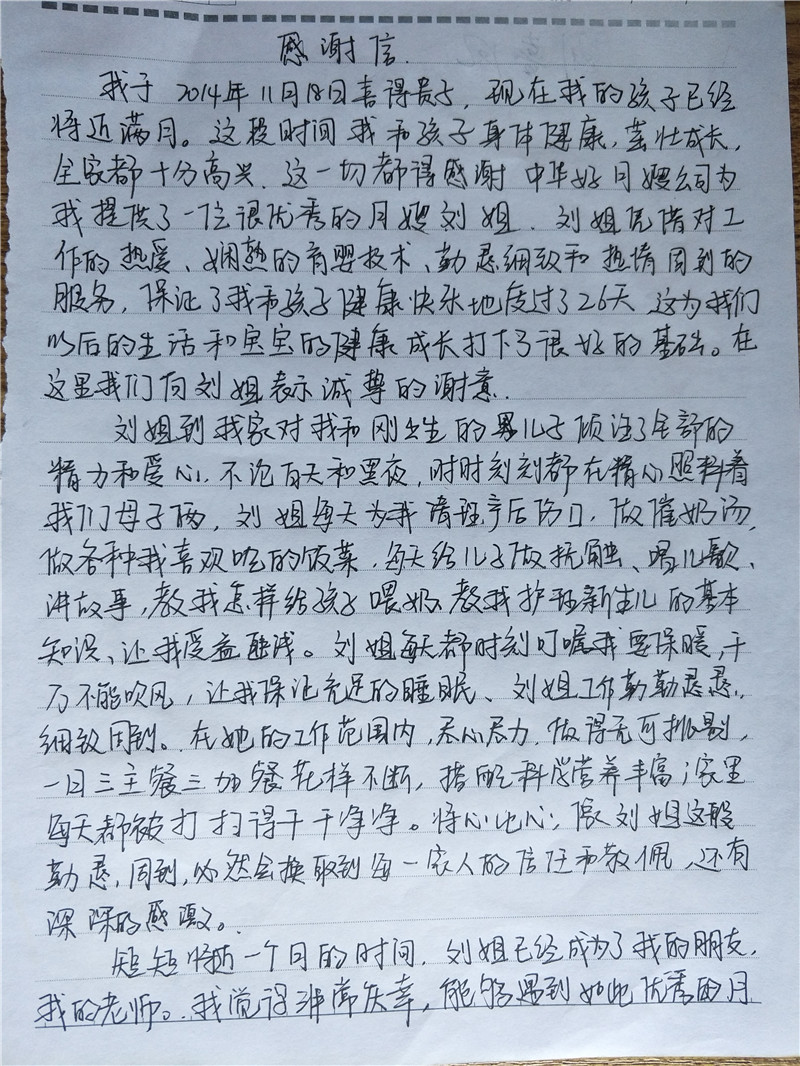 感谢信.
我于 2014年11月18日喜得贵子，现在我的孩子已经
将近满月。这段时间我和孩子身体健康，茁壮成长，
全家都十分高兴．这一切都得感谢中华好月嫂公司为
我提供了一位很优秀的月嫂刘姐．刘姐凭借对工
作的热爱、娴熟的育婴技术、勤恳细致和热情周到的
服务，保证了我和孩子健康快乐地度过了26天．这为我们
以后的生活和宝宝的健康成长打下了很好的基础。在
这里我们向刘姐表示诚挚的谢意．
刘姐到我家对我和刚出生的男儿子倾注了全部的
精力和爱心．不论白天和黑夜，时时刻刻都在精心照料着
我们母子俩，刘姐每天为我清理产后伤口，做催奶汤，
做各种我喜欢吃的饭菜．每天给儿子做抚触、唱儿歌、
讲故事，教我怎样给孩子喂奶、教我护理新生儿的基本
知识、让我受益匪浅。刘姐每天都时刻叮嘱我要保暖，千
万不能吹风，让我保证充足的睡眠、刘姐工作勤勤恳恳，
细致周到。在她的工作范围内，尽心尽力．做得无可挑剔，
一日三主餐三加餐花样不断，搭配科学营养丰富；家里
每天都被打扫得干干净净。将心比心；像刘姐这般
勤恳，周到，必然会换取到每一家人的信任和敬佩，还有
深深的感激。
短短将近一个月的时间．刘姐已经成为了我的朋友，
我的老师。我觉得非常庆幸，能够遇到如此优秀的月